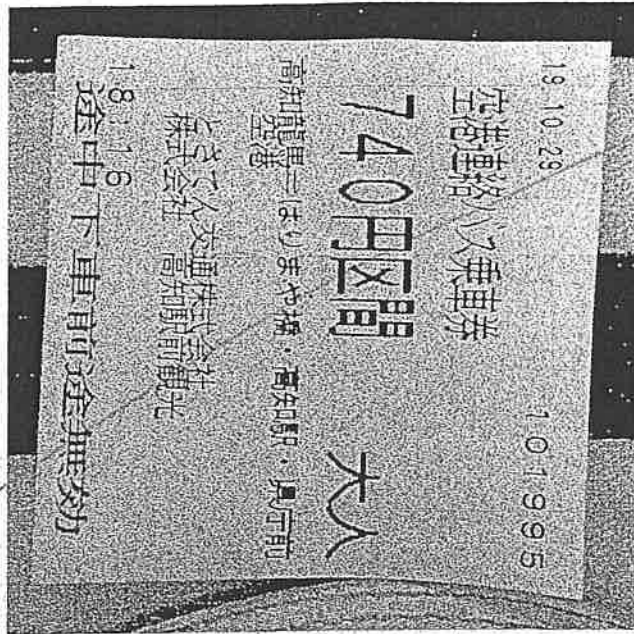 19.10.29
101995
空港連絡バス乗車券
740円区間 大人
高知龍馬空港=はりまや橋・高知駅・県庁前
とさでん交通株式会社
株式会社 高知駅前観光
18:16
途中下車前途無効